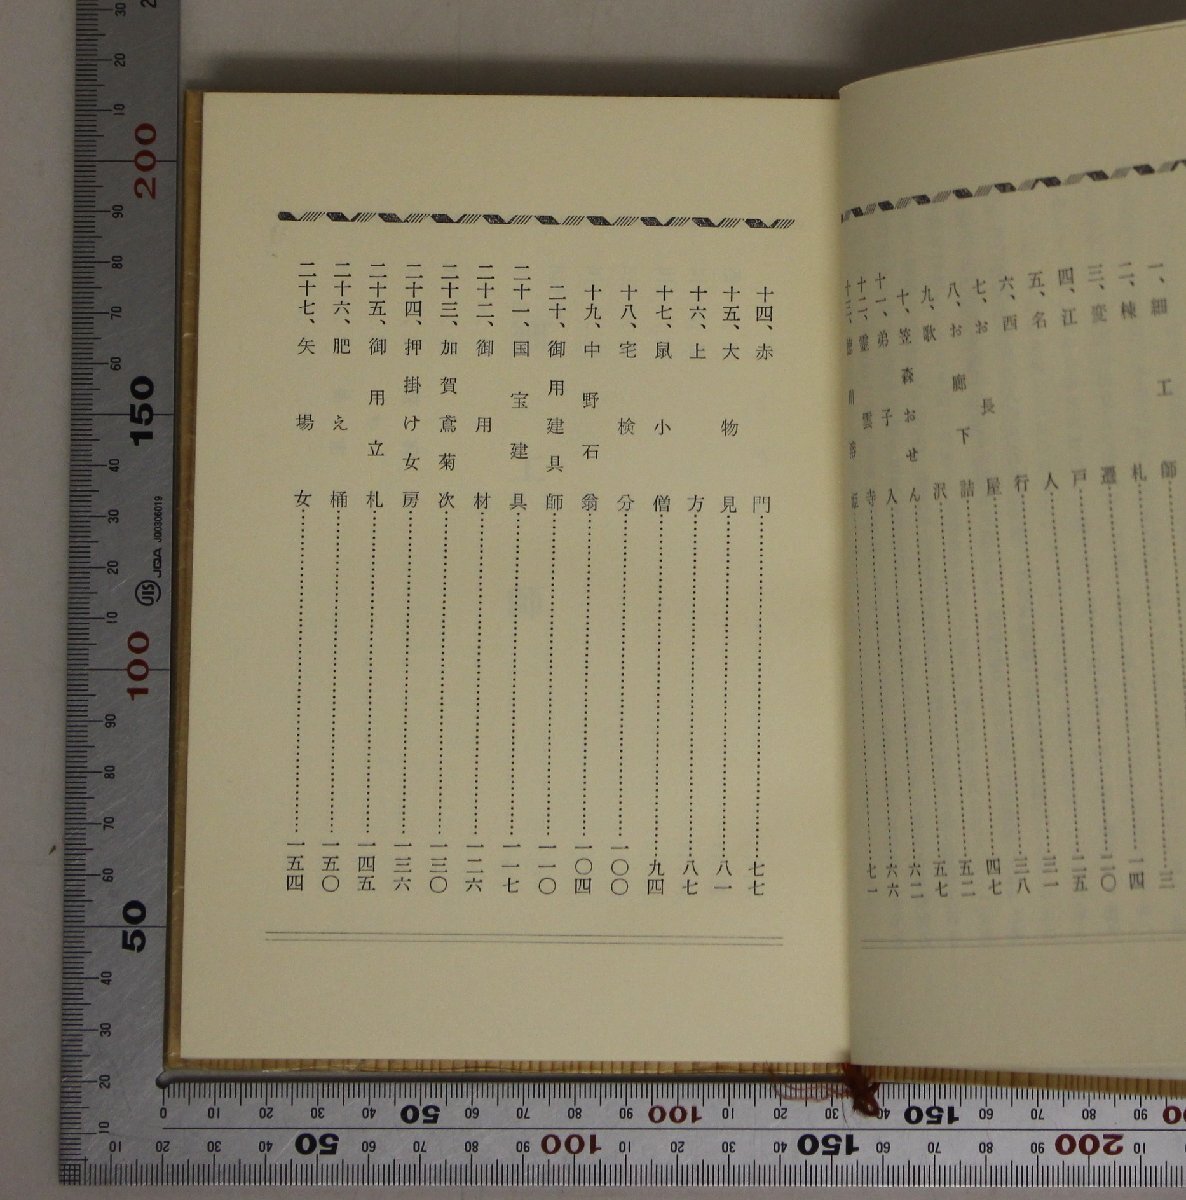 一、細工師……三
二、棟札……一四
三、変遷……二〇
四、江戸……二五
五、名人……三一
六、西行……三八
七、お長屋……四七
八、お廊下詰……五二
九、歌沢……五七
十、笠森おせん……六二
十一、弟子人……六六
十二、霊雲寺……七一
十四、赤門……七七
十五、大物見……八一
十六、上方……八七
十七、鼠小僧……九四
十八、宅検分……一〇〇
十九、中野石翁……一〇四
二十、御用建具師……一一〇
二十一、国宝建具……一一七
二十二、御用材……一二六
二十三、加賀鳶菊次……一三〇
二十四、押掛け女房……一三六
二十五、御用立札……一四五
二十六、肥え桶……一五〇
二十七、矢場女……一五四